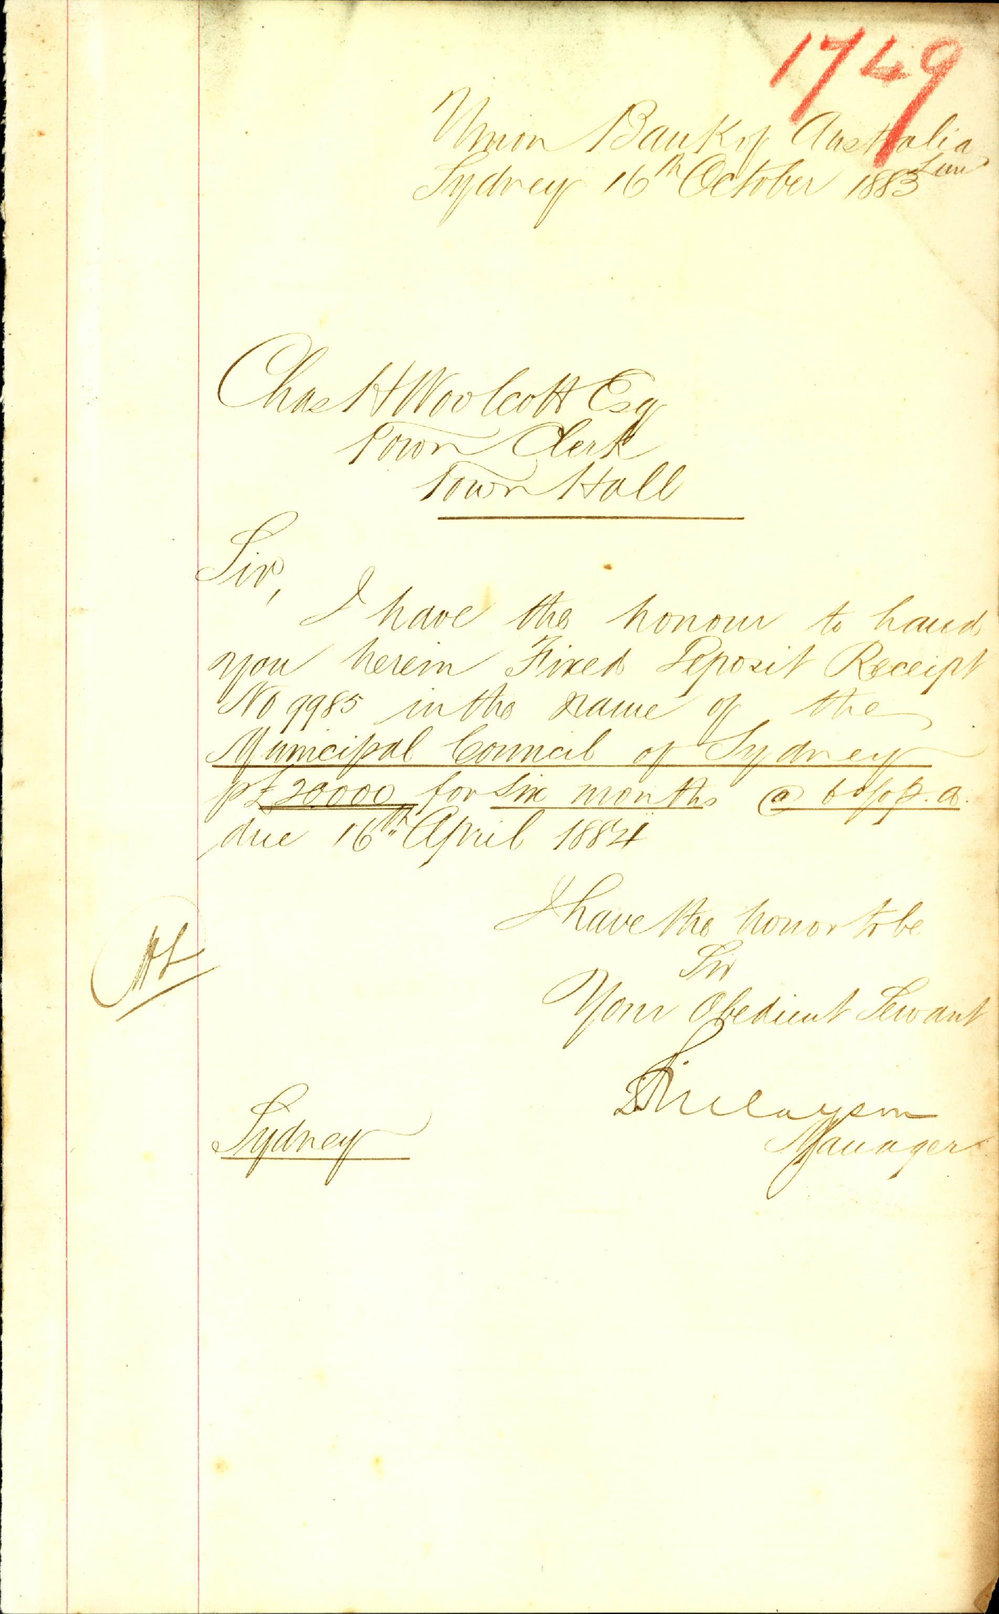 1749
Union Bank of Australia Limd
Sydney 16th October 1883
Chas H Woolcott Esq
Town Clerk
Town Hall
Sir,
I have the honour to hand
you herein Fixed Deposit Receipt
No 9985 in the name of the
Municipal Council of Sydney
p £20000 for six months @ 6 % p. a.
due 16th April 1884
I have the honor to be
Sir
Your Obedient Servant
Finlayson
Manager
Sydney